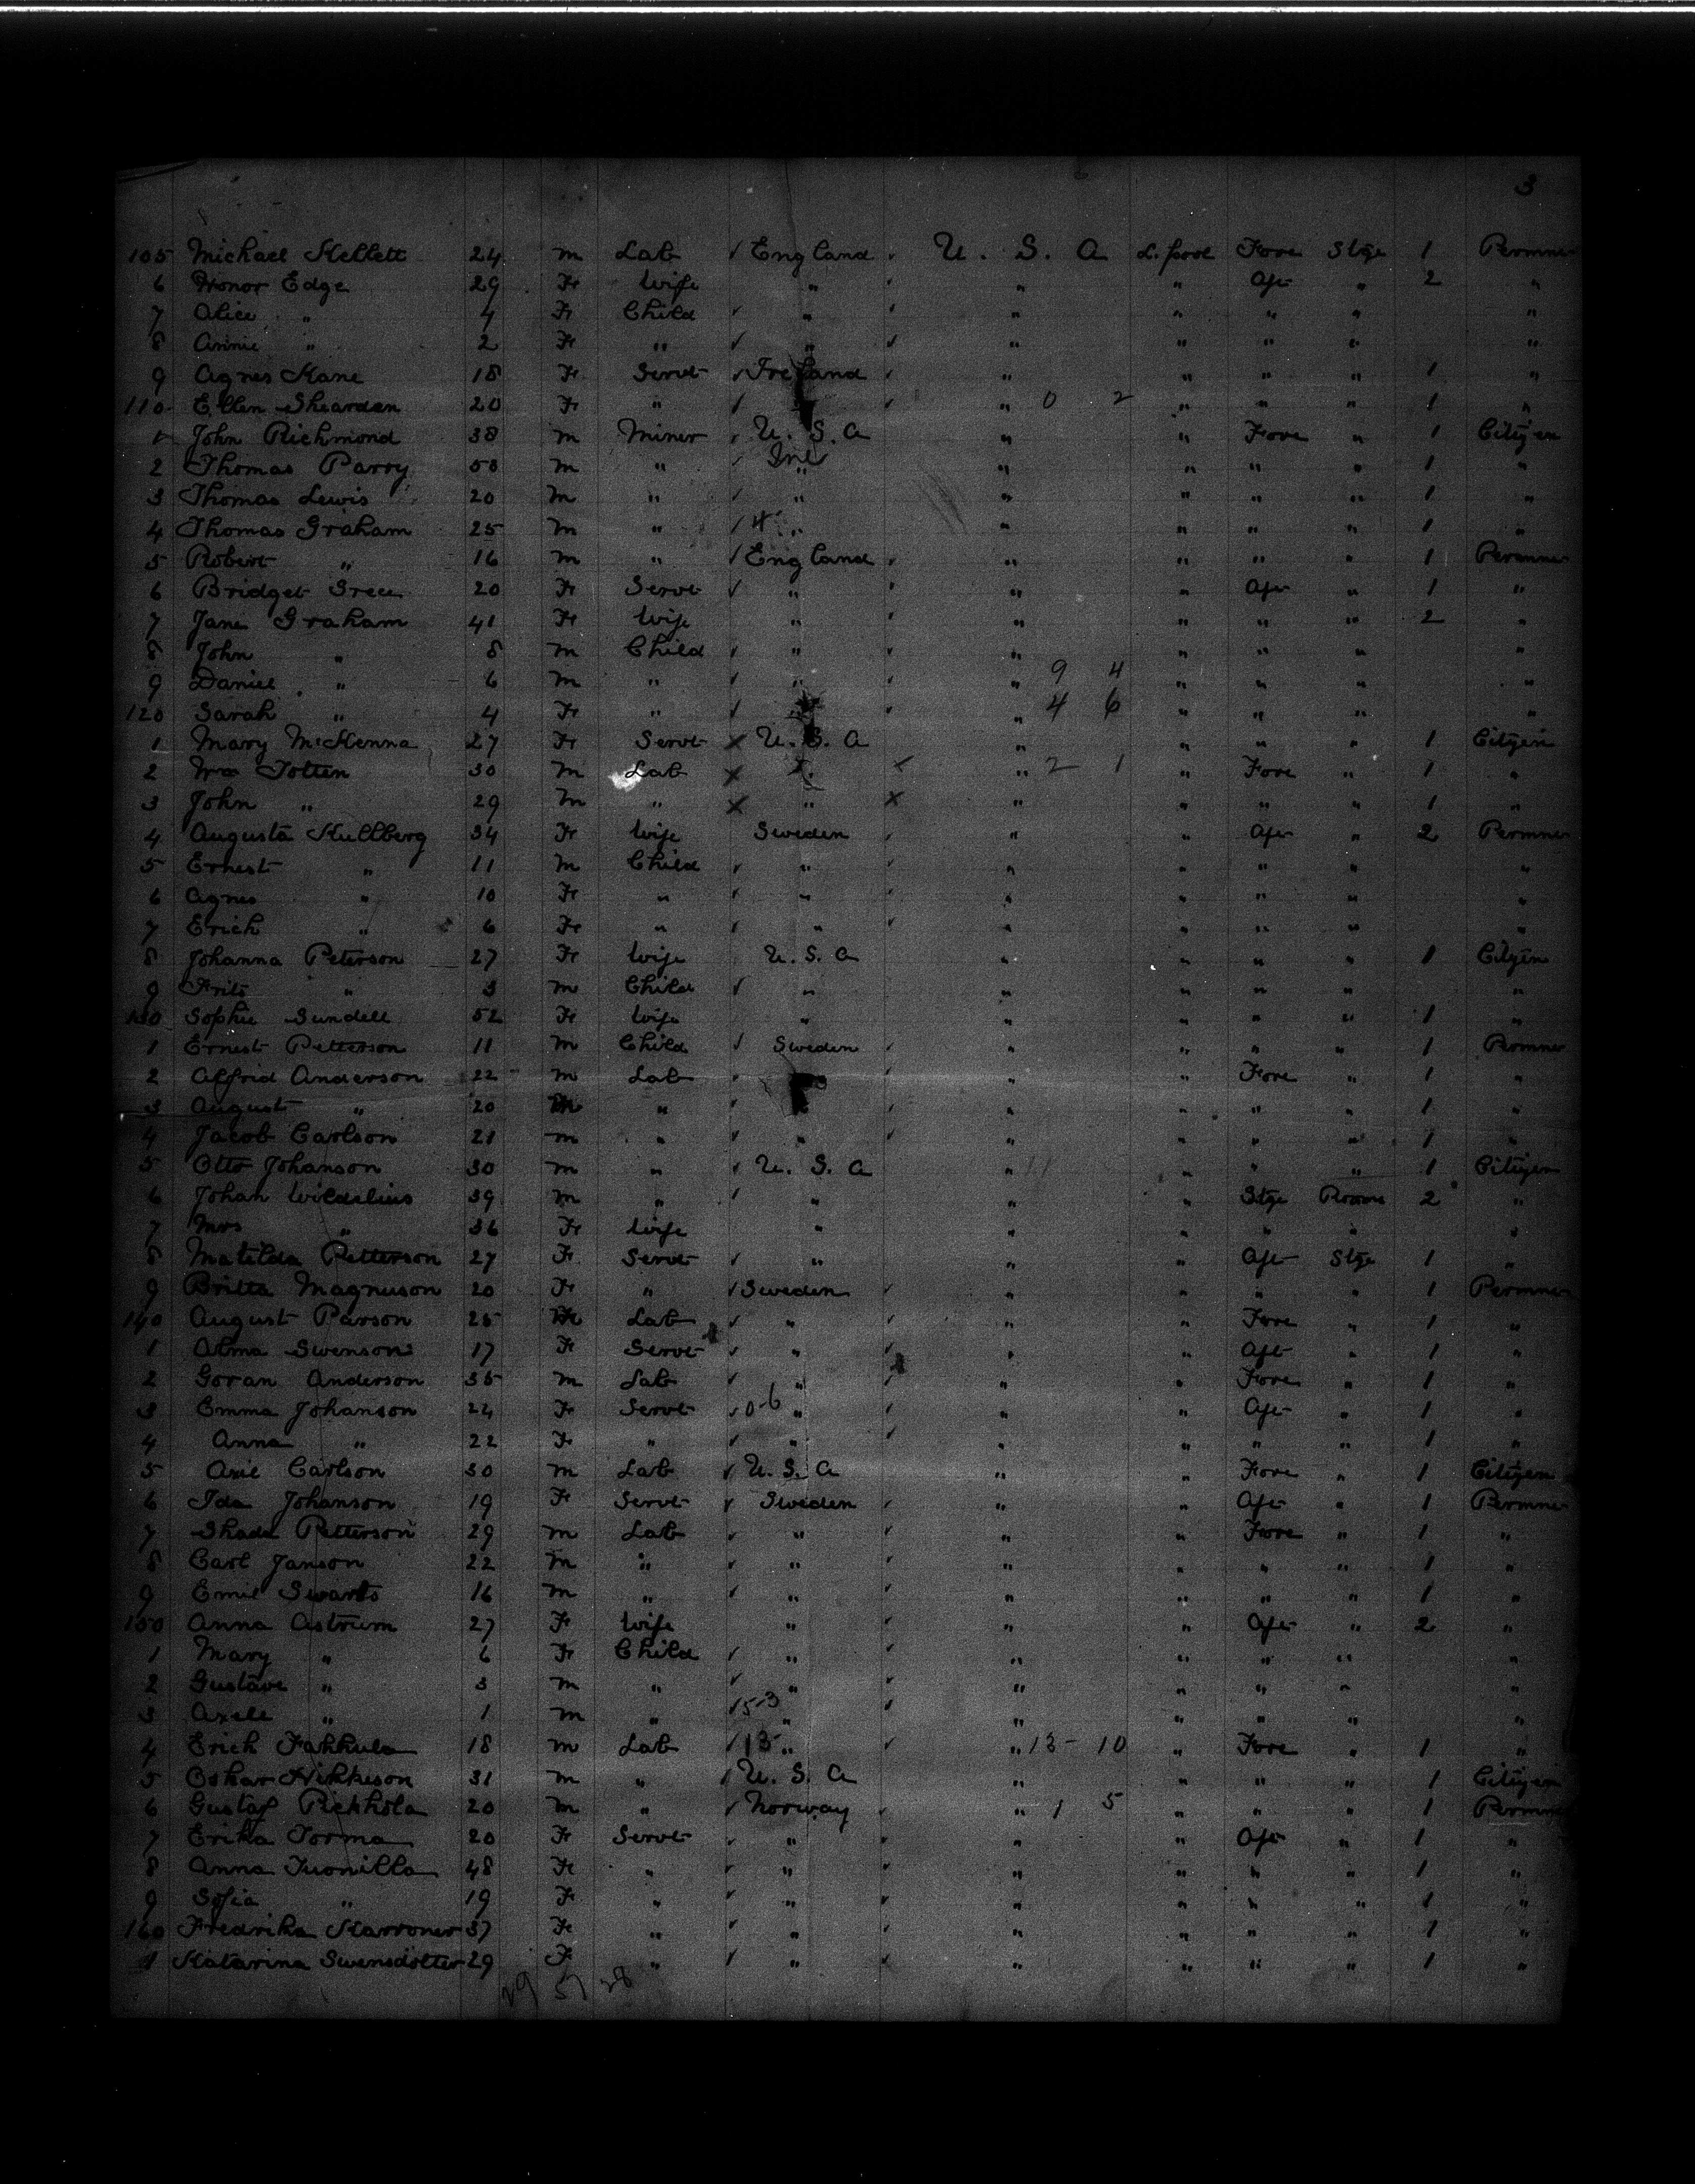 3
105 Michael Kellett 24 m Lab England U. S. A L.pool Fore Stge 1 Permne
6 Honor Edge 29 Fe Wife " " " Aft " 2 "
7 Alice " 4 Fe Child " " " " " "
8 Annie " 2 Fe " " " " " " "
9 Agnes Kane 18 Fe Servt Ireland " " " " 1 "
110 Ellen Shearden 20 Fe " " 0 2 " " " 1 "
1 John Richmond 38 m Miner U. S. A " " Fore " 1 Citizen
2 Thomas Parry 58 m " Ire " " " " " 1 "
3 Thomas Lewis 20 m " " " " " " 1 "
4 Thomas Graham 25 m " 4 " " " " " 1 "
5 Robert " 16 m " England " " " " 1 Permne
6 Bridget 20 Fe Servt " " " Aft " 1 "
7 Jane Graham 41 Fe Wife " " " " " 2 "
8 John " 8 m Child " " " " " "
9 Daniel " 6 m " " " 9 4 " " " "
120 Sarah " 4 Fe " " 4 6 " " " "
1 Mary McKenna 27 Fe Servt x U. S. A " " " " 1 Citizen
2 Wm Totten 30 m Lab x x " 2 1 " Fore " 1 "
3 John " 29 m " x " x " " " " 1 "
4 Augusta Kullberg 34 Fe Wife Sweden " " Aft " 2 Permne
5 Ernest " 11 m Child " " " " " "
6 Agnes " 10 Fe " " " " " " "
7 Erich " 6 Fe " " " " " " "
8 Johanna Peterson 27 Fe Wife U. S. A " " " " 1 Citizen
9 Frits " 3 m Child " " " " " "
130 Sophie Sundell 52 Fe Wife " " " " " 1 "
1 Ernest Petterson 11 m Child Sweden " " " " 1 Permne
2 Alfrid Anderson 22 m Lab " " Fore " 1 "
3 August " 20 m " " " " " 1 "
4 Jacob Carlson 21 m " " " " " " 1 "
5 Otto Johanson 30 m " U. S. A " 11 " " " 1 Citizen
6 Johan Wildelius 39 m " " " " Stge Rooms 2 "
7 Mrs " 36 Fe Wife " " " " " "
8 Matilda Petterson 27 Fe Servt " " " Aft Stge 1 "
9 Britta Magnuson 20 Fe " Sweden " " " " 1 Permne
140 August Parson 25 m Lab " " " Fore " 1 "
1 Alma Swenson 17 Fe Servt " " " Aft " 1 "
2 Goran Anderson 35 m Lab " " " Fore " 1 "
3 Emma Johanson 24 Fe Servt 0-6 " " " Aft " 1 "
4 Anna " 22 Fe " " " " " " 1 "
5 Axil Carlson 30 m Lab U. S. A " " Fore " 1 Citizen
6 Ida Johanson 19 Fe Servt Sweden " " Aft " 1 Permne
7 Petterson 29 m Lab " " " Fore " 1 "
8 Carl Janson 22 m " " " " " " 1 "
9 Emil Swarts 16 m " " " " " " 1 "
150 Anna Astrum 27 Fe Wife " " " Aft " 2 "
1 Mary " 6 Fe Child " " " " " "
2 Gustave " 3 m " " " " " " "
3 Axell " 1 m " 5-3 " " " " " "
4 Erich Fakkula 18 m Lab 13 " " 13-10 " Fore " 1 "
5 Oskar Nikkison 31 m " U. S. A " " " " 1 Citizen
6 Gustaf Pickhola 20 m " Norway " 1 5 " " " 1 Permne
7 Erika Torma 20 Fe Servt " " " Aft " 1 "
8 Anna Tuonilla 48 Fe " " " " " " 1 "
9 Sofia " 19 Fe " " " " " " 1 "
160 Fredrika Karroner 37 Fe " " " " " " 1 "
1 Katarina Swensdotter 29 Fe " " " " " " 1 "
29 57 28